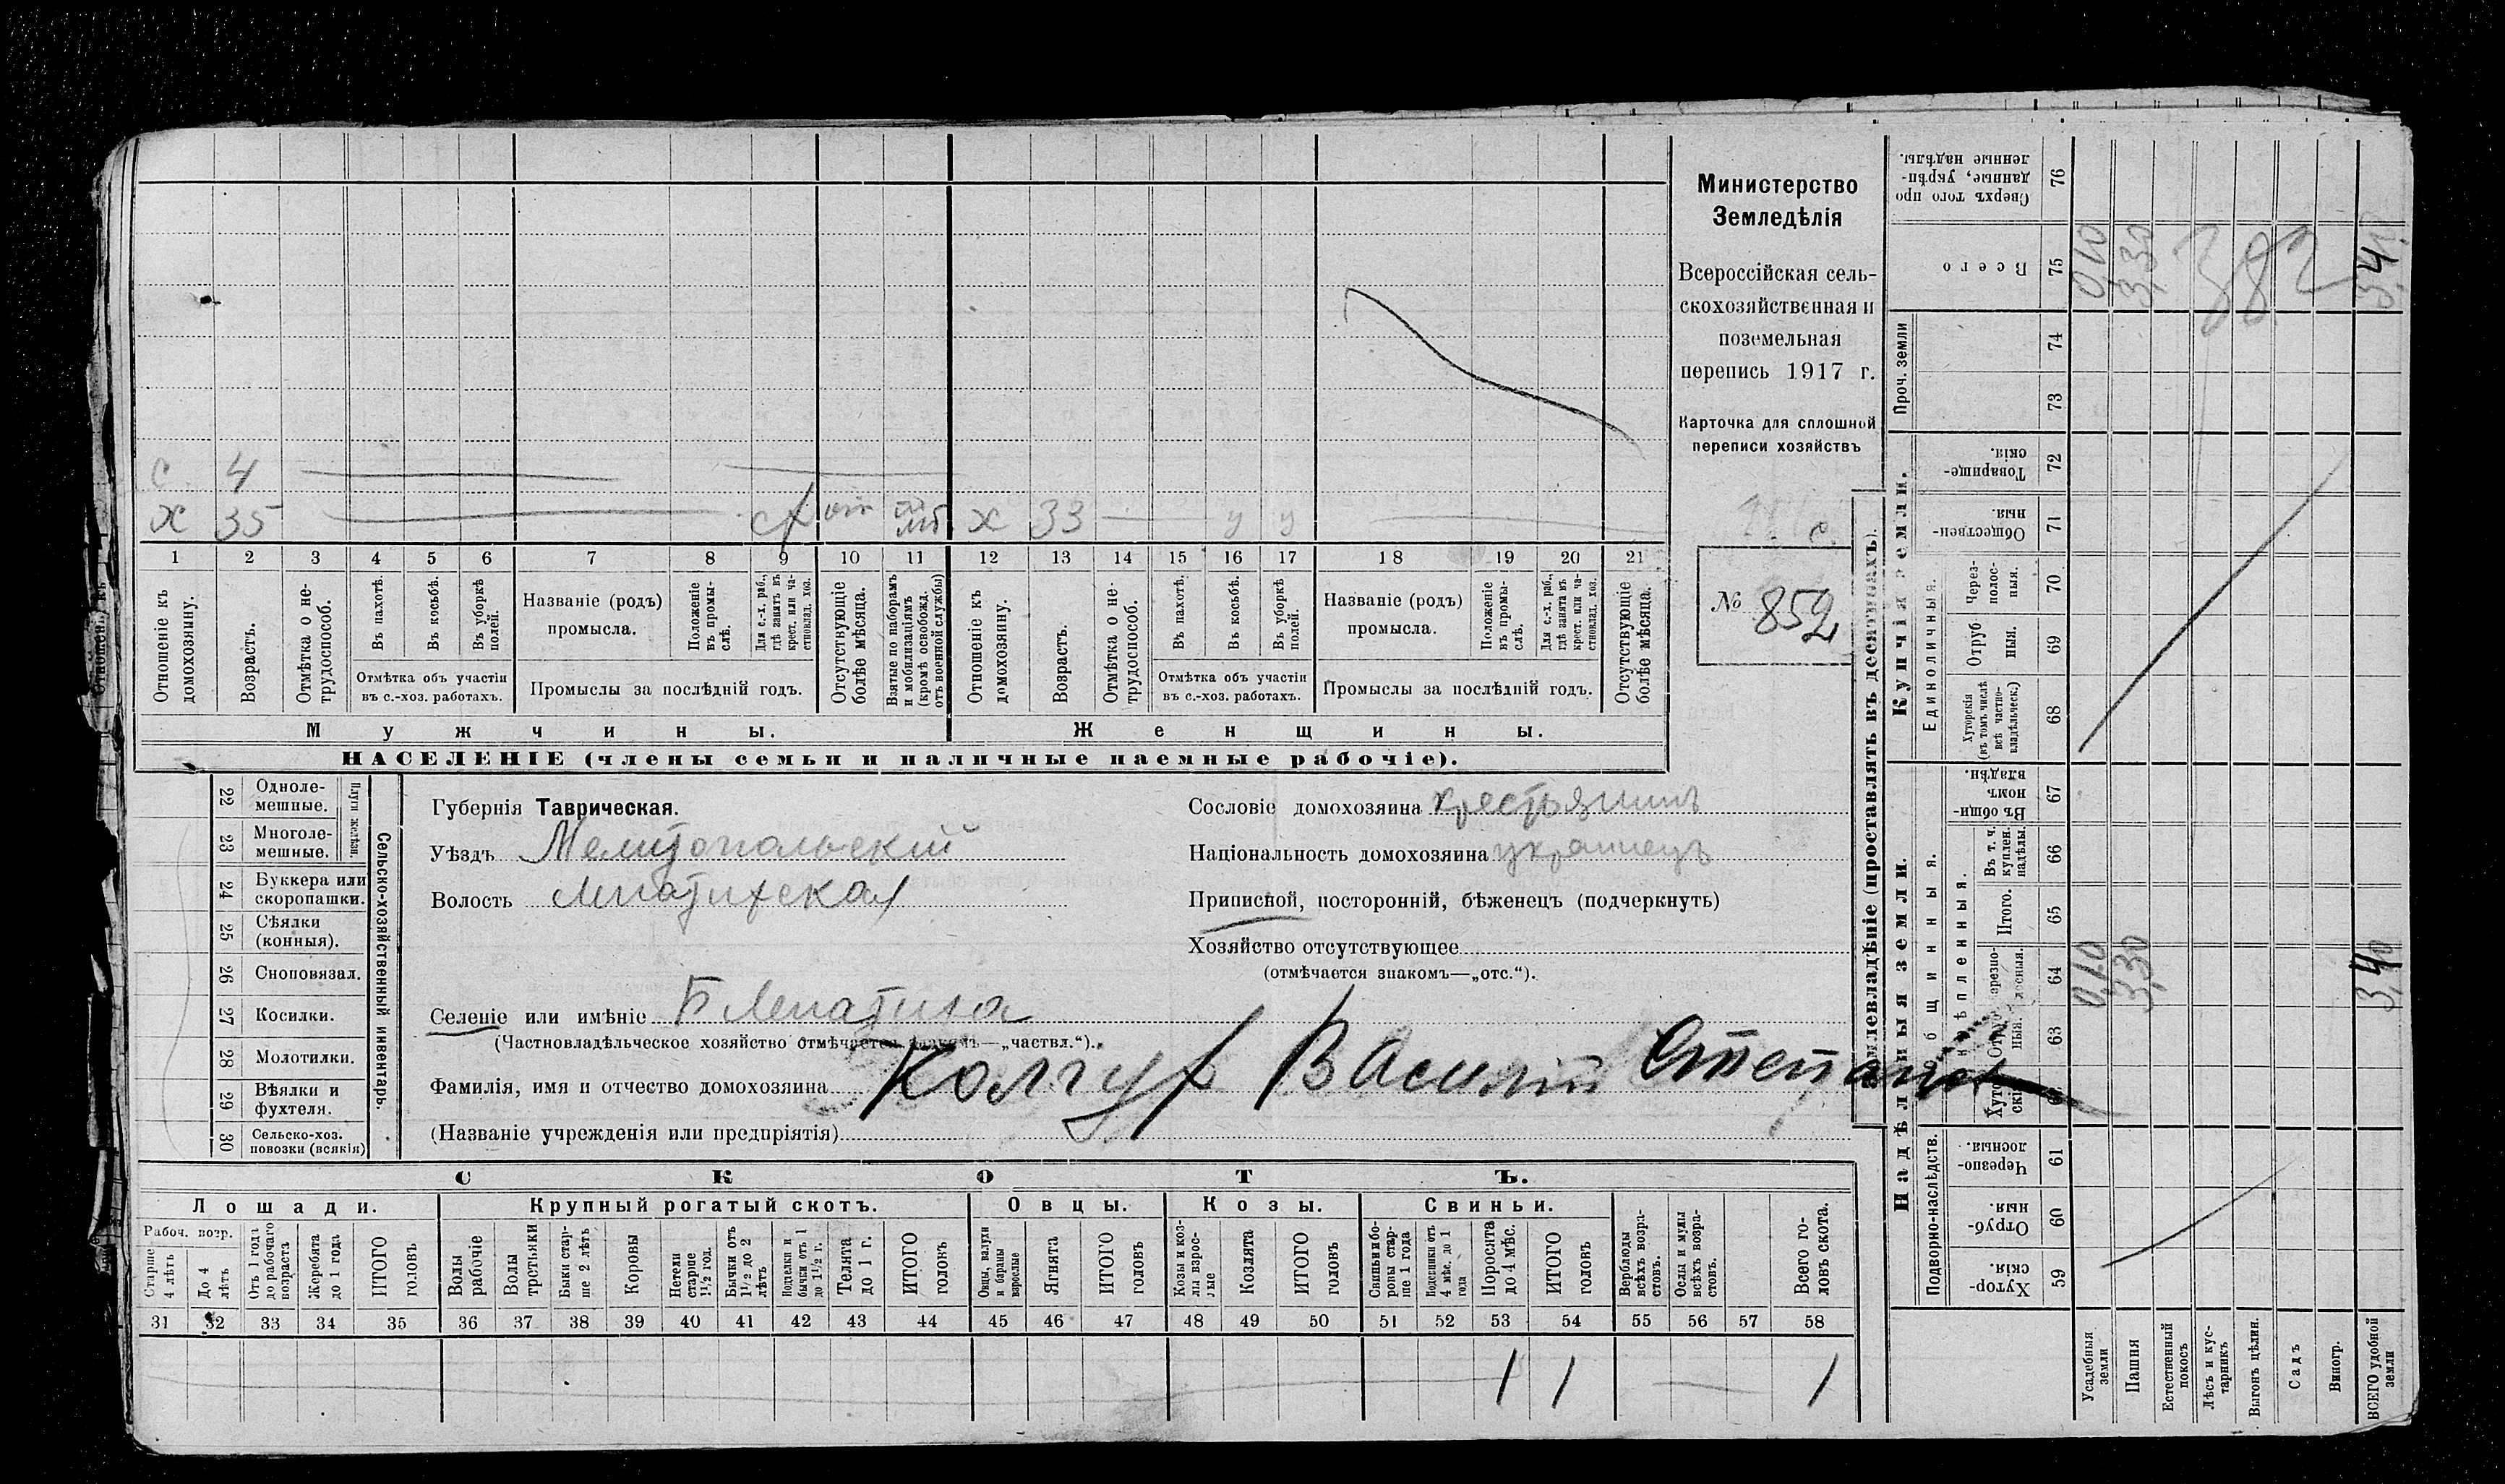 с 4
х 35 сх отс х 33 у у
1 2 3 4 5 6 7 8 9 10 11 12 13 14 15 16 17 18 19 20 21
Отношеніе къ домохозяину.
Возрастъ.
Отмѣтка о нетрудоспособ.
Въ пахотѣ.
Въ косьбѣ.
Въ уборкѣ полей.
Отмѣтка объ участіи
въ с.-хоз. работахъ.
Названіе (родъ)
промысла.
Положеніе въ промыслѣ.
Для с.-х. раб., гдѣ занятъ въ крест. или частновлад. хоз.
Промыслы за послѣдній годъ.
Отсутствующіе болѣе мѣсяца.
Взятые по наборамъ и мобилизаціямъ (кромѣ освобожд. отъ военной службы)
Отношеніе къ домохозяину.
Возрастъ.
Отмѣтка о нетрудоспособ.
Въ пахотѣ.
Въ косьбѣ.
Въ уборкѣ полей.
Отмѣтка объ участіи
въ с.-хоз. работахъ.
Названіе (родъ)
промысла.
Положеніе въ промыслѣ.
Для с.-х. раб., гдѣ занята въ крест. или частновлад. хоз.
Промыслы за послѣдній годъ.
Отсутствующіе болѣе мѣсяца.
Мужчины. Женщины.
НАСЕЛЕНІЕ (члены семьи и наличные наемные рабочіе).
Министерство
Земледѣлія
Всероссійская сель-
скохозяйственная и
поземельная
перепись 1917 г.
Карточка для сплошной
переписи хозяйствъ
с.
№ 852
22 Одноле-
мешные.
23 Многоле-
мешные.
Плуги желѣзн.
24 Буккера или
скоропашки.
25 Сѣялки
(конныя).
26 Сноповязал.
27 Косилки.
28 Молотилки.
29 Вѣялки и
фухтеля.
30 Сельско-хоз.
повозки (всякія)
Сельско-хозяйственный инвентарь.
Губернія Таврическая.
Уѣздъ Мелитопольскій
Волость Лепатихская
Селеніе или имѣніе Б Лепатиха
(Частновладѣльческое хозяйство отмѣчается знакомъ—„частвл.“).
Фамилія, имя и отчество домохозяина Колгух Василий Степан
(Названіе учрежденія или предпріятія)
Сословіе домохозяина крестьянинъ
Національность домохозяина украинецъ
Приписной, посторонній, бѣженецъ (подчеркнуть)
Хозяйство отсутствующее
(отмѣчается знакомъ—„отс.“).
СКОТЪ.
Лошади. Крупный рогатый скотъ. Овцы. Козы. Свиньи.
Рабоч. возр.
Старше 4 лѣтъ
До 4 лѣтъ
Отъ 1 года до рабочаго возраста
Жеребята до 1 года
ИТОГО головъ
Волы рабочіе
Волы третьяки
Быки старше 2 лѣтъ
Коровы
Нетели старше 1½ год.
Бычки отъ 1½ до 2 лѣтъ
Подтелки и бычки отъ 1 до 1½ г.
Телята до 1 г.
ИТОГО головъ
Овцы, валухи и бараны взрослые
Ягнята
ИТОГО головъ
Козы и козлы взрослые
Козлята
ИТОГО головъ
Свиньи и боровы старше 1 года
Подсвинки отъ 4 мѣс. до 1 года
Поросята до 4 мѣс.
ИТОГО головъ
Верблюды всѣхъ возрастовъ.
Ослы и мулы всѣхъ возрастовъ.
Всего головъ скота.
31 32 33 34 35 36 37 38 39 40 41 42 43 44 45 46 47 48 49 50 51 52 53 54 55 56 57 58
1 1 1
Землевладѣніе (проставлять въ десятинахъ).
Сверхъ того проданные, укрѣпленные надѣлы. 76
Всего 75 0,10 3,30 382 3,4
Проч. земли 74 73
Купчія земли.
Товарищескія. 72
Общественныя. 71
Единоличныя.
Черезполосныя. 70
Отрубныя. 69
Хуторскія (въ томъ числѣ всѣ частновладѣльческ.) 68
Надѣльныя земли.
Общинныя.
Въ общинномъ владѣн. 67
Укрѣпленныя.
Въ т. ч. куплен. надѣлы. 66
Итого. 65
64 0,10 3,30 3,40
63
Подворно-наслѣдств.
Черезполосныя. 61
Отрубныя. 60
Хуторскія. 59
Усадебныя земли
Пашня
Естественный покосъ
Лѣсъ и кустарникъ
Выгонъ цѣлин.
Садъ
Виногр.
ВСЕГО удобной земли